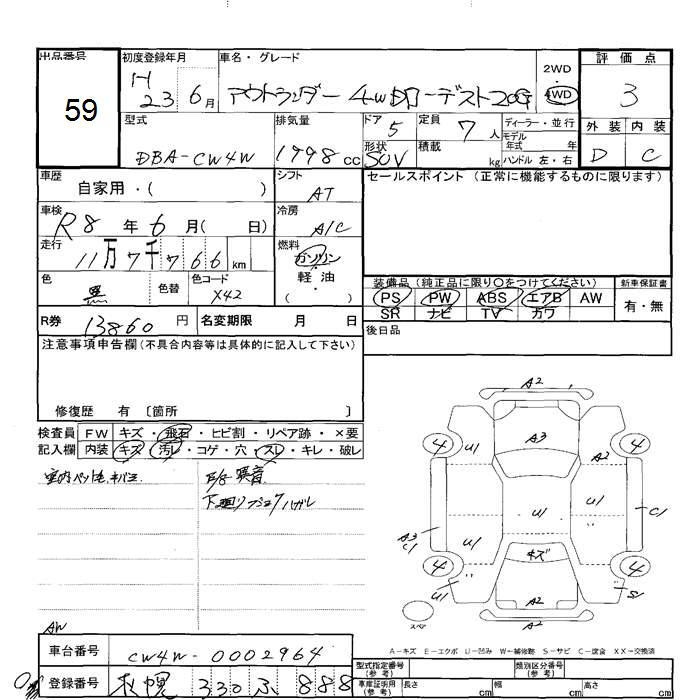 出品番号 59
初度登録年月 H 23 6月
車名・グレード アウトランダー 4WD ローデスト20G
2WD 4WD
評価点 3
外装 内装
D C
型式 DBA-CW4W
排気量 1998 cc
ドア 5 形状 SUV
定員 7 人 積載 kg
ディーラー・並行
モデル年式 年
ハンドル 左・右
車歴 自家用・( )
シフト AT
セールスポイント (正常に機能するものに限ります)
車検 R8 年 6 月( 日)
冷房 A/C
走行 11万7千766 km
燃料 ガソリン 軽・油 ( )
色 黒 色替 色コード X42
装備品(純正品に限り〇をつけてください)
PS PW ABS エアB AW
SR ナビ TV カワ
新車保証書
有・無
R券 13860 円
名変期限 月 日
後日品
注意事項申告欄(不具合内容等は具体的に記入して下さい)
修復歴 有 〔箇所 〕
検査員記入欄
FW キズ・飛石・ヒビ割・リペア跡・×要
内装 キズ・汚レ・コゲ・穴・スレ・キレ・破レ
室内ペット毛
異音
下廻り ハガレ
A2
A3
4 U1 A2 4
U1 U1 U1
A3 C1 C1
キズ
4 4
U1 A2 S
A2
スペア
A-キズ E-エクボ U-凹み W-補修跡 S-サビ C-腐食 XX-交換済
AW
車台番号 CW4W-0002964
登録番号 札幌 330 ふ 888
型式指定番号(参考)
類別区分番号(参考)
車庫証明用(参考) 長さ cm 幅 cm 高さ cm